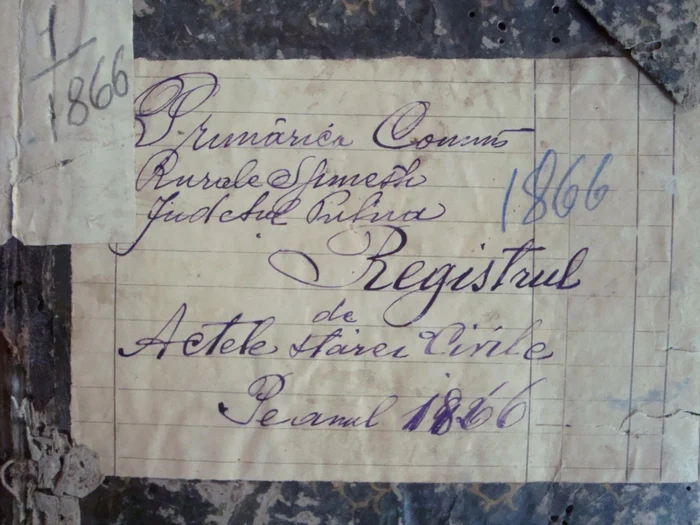 1
1866
Primăria Comun
Rurale Spinesti
Judetul Putna
1866
Registrul
de
Actele stărei Civile
Pe anul 1866